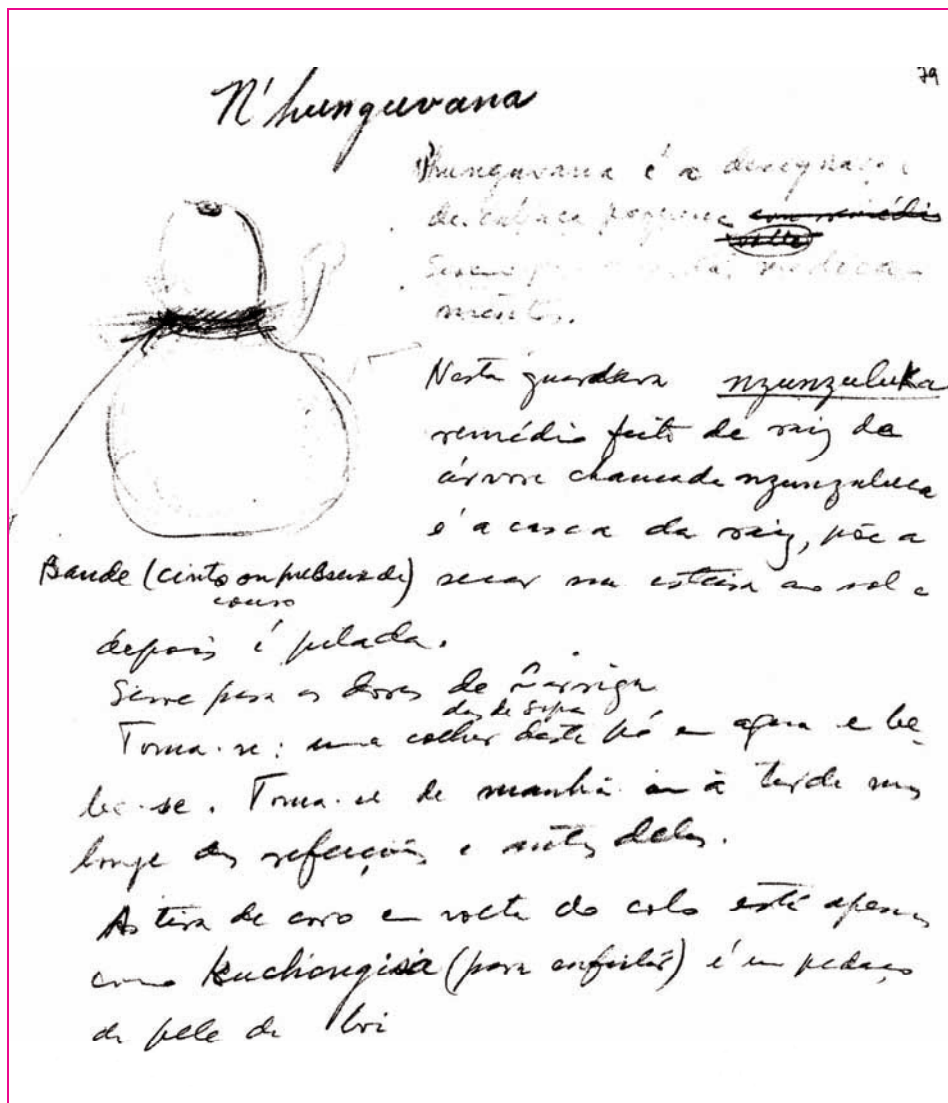 79
N'hunguvana
Nhunguvana é a designação
de cabaça pequena com remédio
medica-
mentos.
Nesta guardava nzunzuluka
remédio feito de raiz da
árvore chamada nzunzuluca
é a casca da raiz, põe a
Bande (cinto ou pulseira de) secar na esteira ao sol e
couro
depois é pilada.
Serve para as dores de barriga
das de sopa
Toma-se: uma colher deste pó em agua e be-
be-se. Toma-se de manhã ou à tarde mas
longe das refeições e antes delas.
A tira de coro em volta do colo está apenas
como Kuchongisa (para enfeitar) é um pedaço
de pele de boi